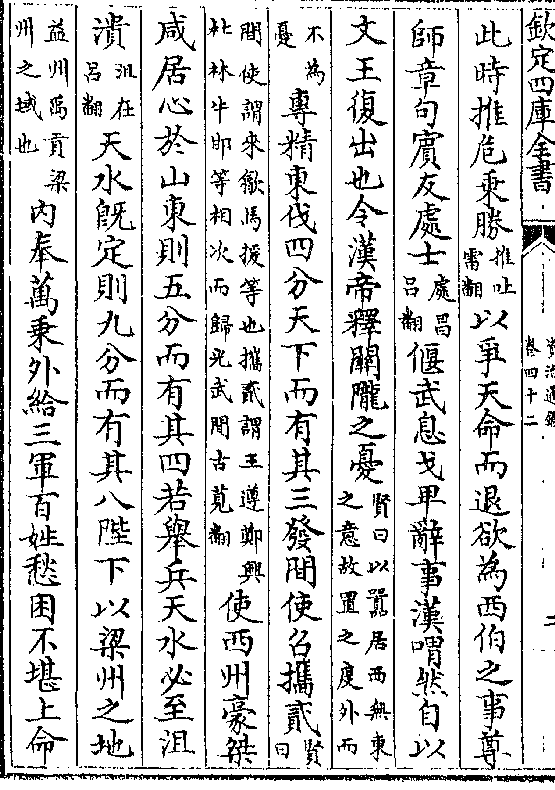 欽定四庫全書
資治通鑑
卷四十二
二
此時推危乘勝推吐雷翻以爭天命而退欲為西伯之事尊
師章句賓友處士處昌呂翻偃武息戈卑辭事漢喟然自以
文王復出也令漢帝釋關隴之憂賢曰以囂居西無東之意故置之度外而
不為憂專精東伐四分天下而有其三發間使召攜貳賢曰
間使謂來歙馬援等也攜貳謂王遵鄭興杜林牛邯等相次而歸光武間古莧翻使西州豪桀
咸居心於山東則五分而有其四若舉兵天水必至沮
潰沮在呂翻天水既定則九分而有其八陛下以梁州之地
益州禹貢梁州之域也內奉萬乘外給三軍百姓愁困不堪上命